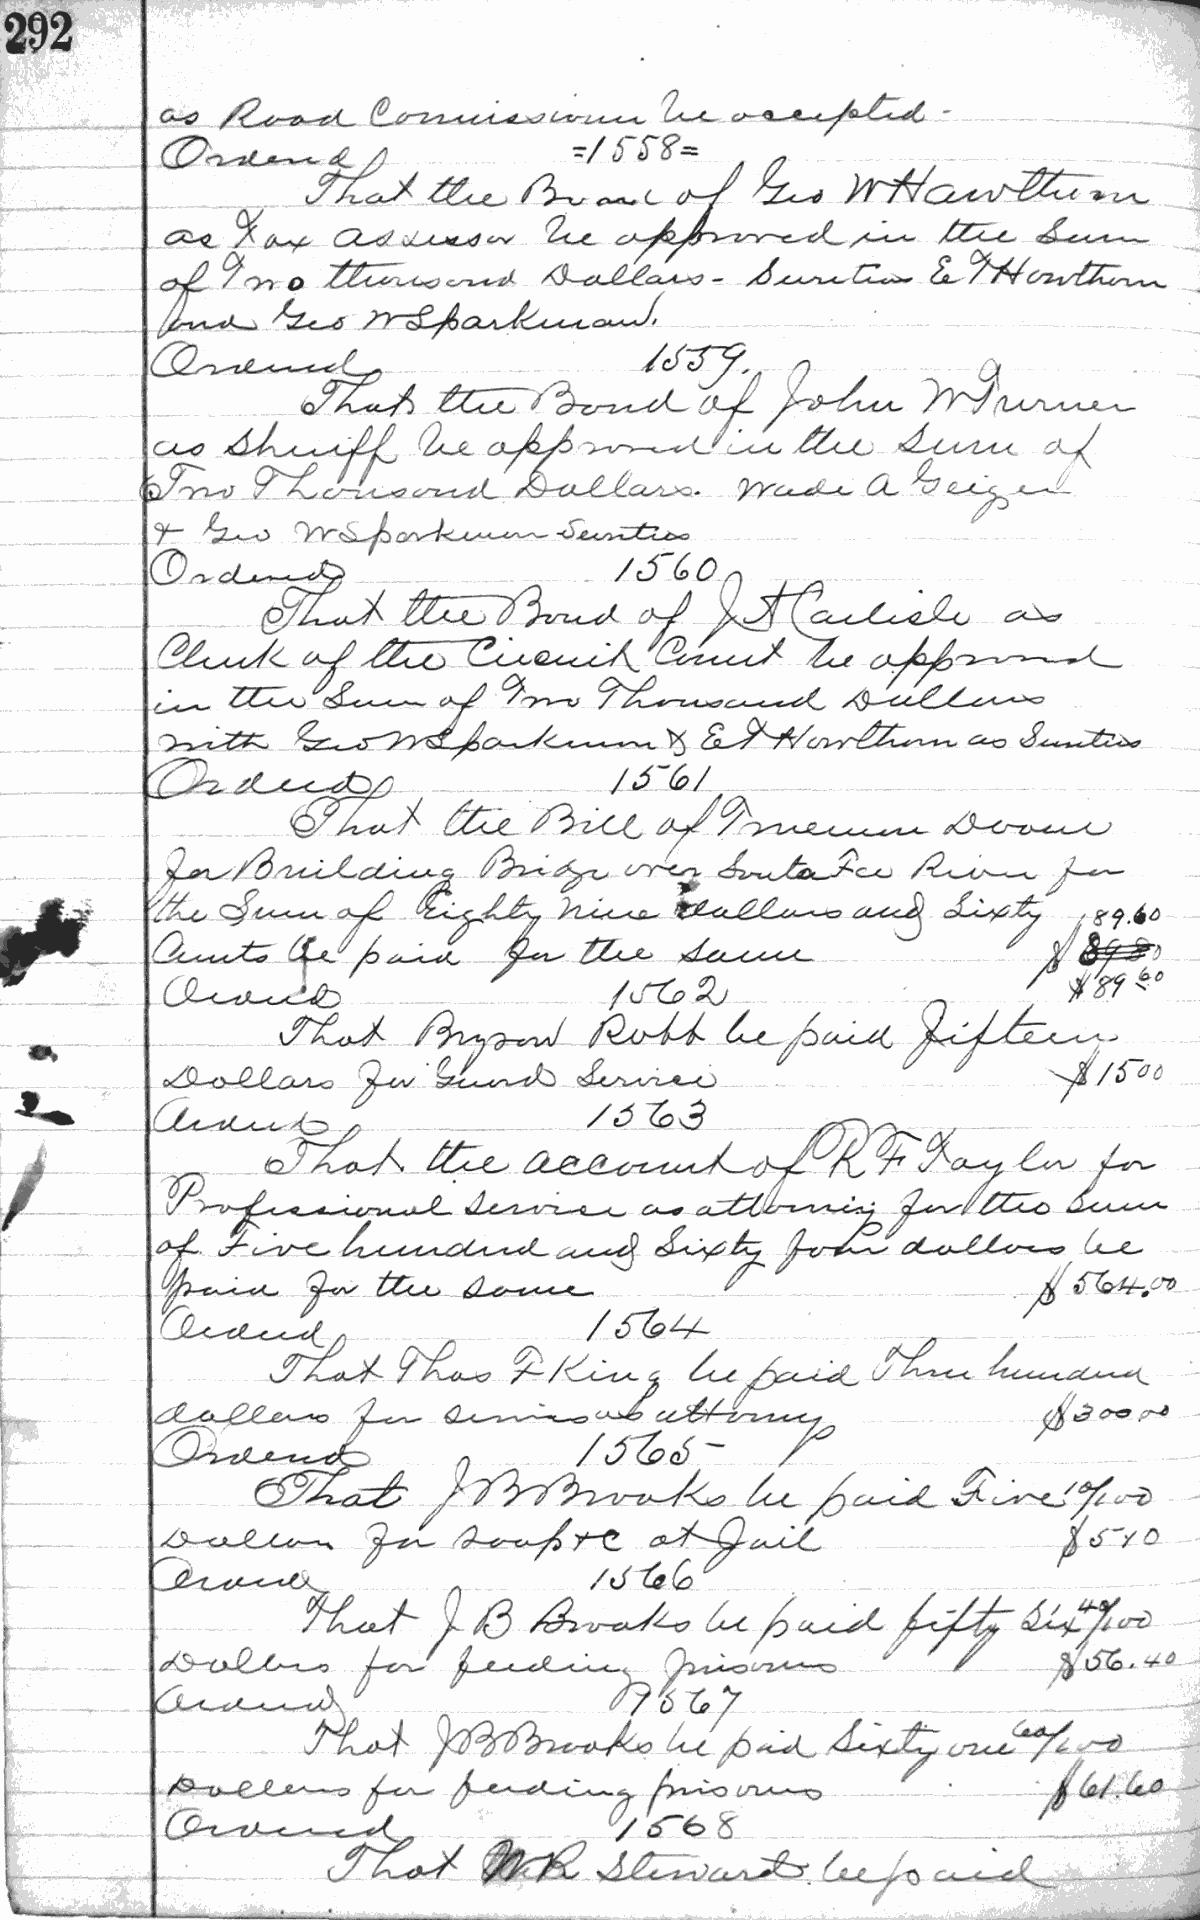 292
as Road Commissioner be accepted -
Ordered =1558=
That the Bond of Geo W Hawthorn
as Tax assessor be approved in the Sum
of Two thousand Dollars - Sureties E T Howthorn
and Geo W Sparkman.
Ordered 1559.
That the Bond of John W Turner
as Sheriff be approved in the Sum of
Two Thousand Dollars. Wade A Geiger
& Geo W Sparkman Sureties
Ordered 1560
That the Bond of J A Carlisle as
Clerk of the Circuit Court be approved
in the Sum of Two Thousand Dollars
with Geo W Sparkman & E T Howthorn as Sureties
Ordered 1561
That the Bill of Trueman Doane
for Building Bridge over Santa Fee River for
the Sum of Eighty Nine dollars and Sixty 89.60
Cents be paid for the same $ 89 80
Ordered 1562 $89 60
That Bryson Robb be paid fifteen
Dollars for Guard Service $1500
Ordered 1563
That the account of R F Taylor for
Professional service as attorney for the sum
of Five hundred and Sixty four dollars be
paid for the same $564.00
Ordered 1564
That Thos F King be paid Three hundred
dollars for services as attorney $300 00
Ordered 1565
That J B Brooks be paid Five 10/100
Dollars for soap &c at Jail $510
Ordered 1566
That J B Brooks be paid fifty Six 40/100
Dollars for feeding prisoners $56.40
Ordered 1567
That J B Brooks be paid Sixty one 60/100
Dollars for feeding prisoners $61.60
Ordered 1568
That W R Steward be paid